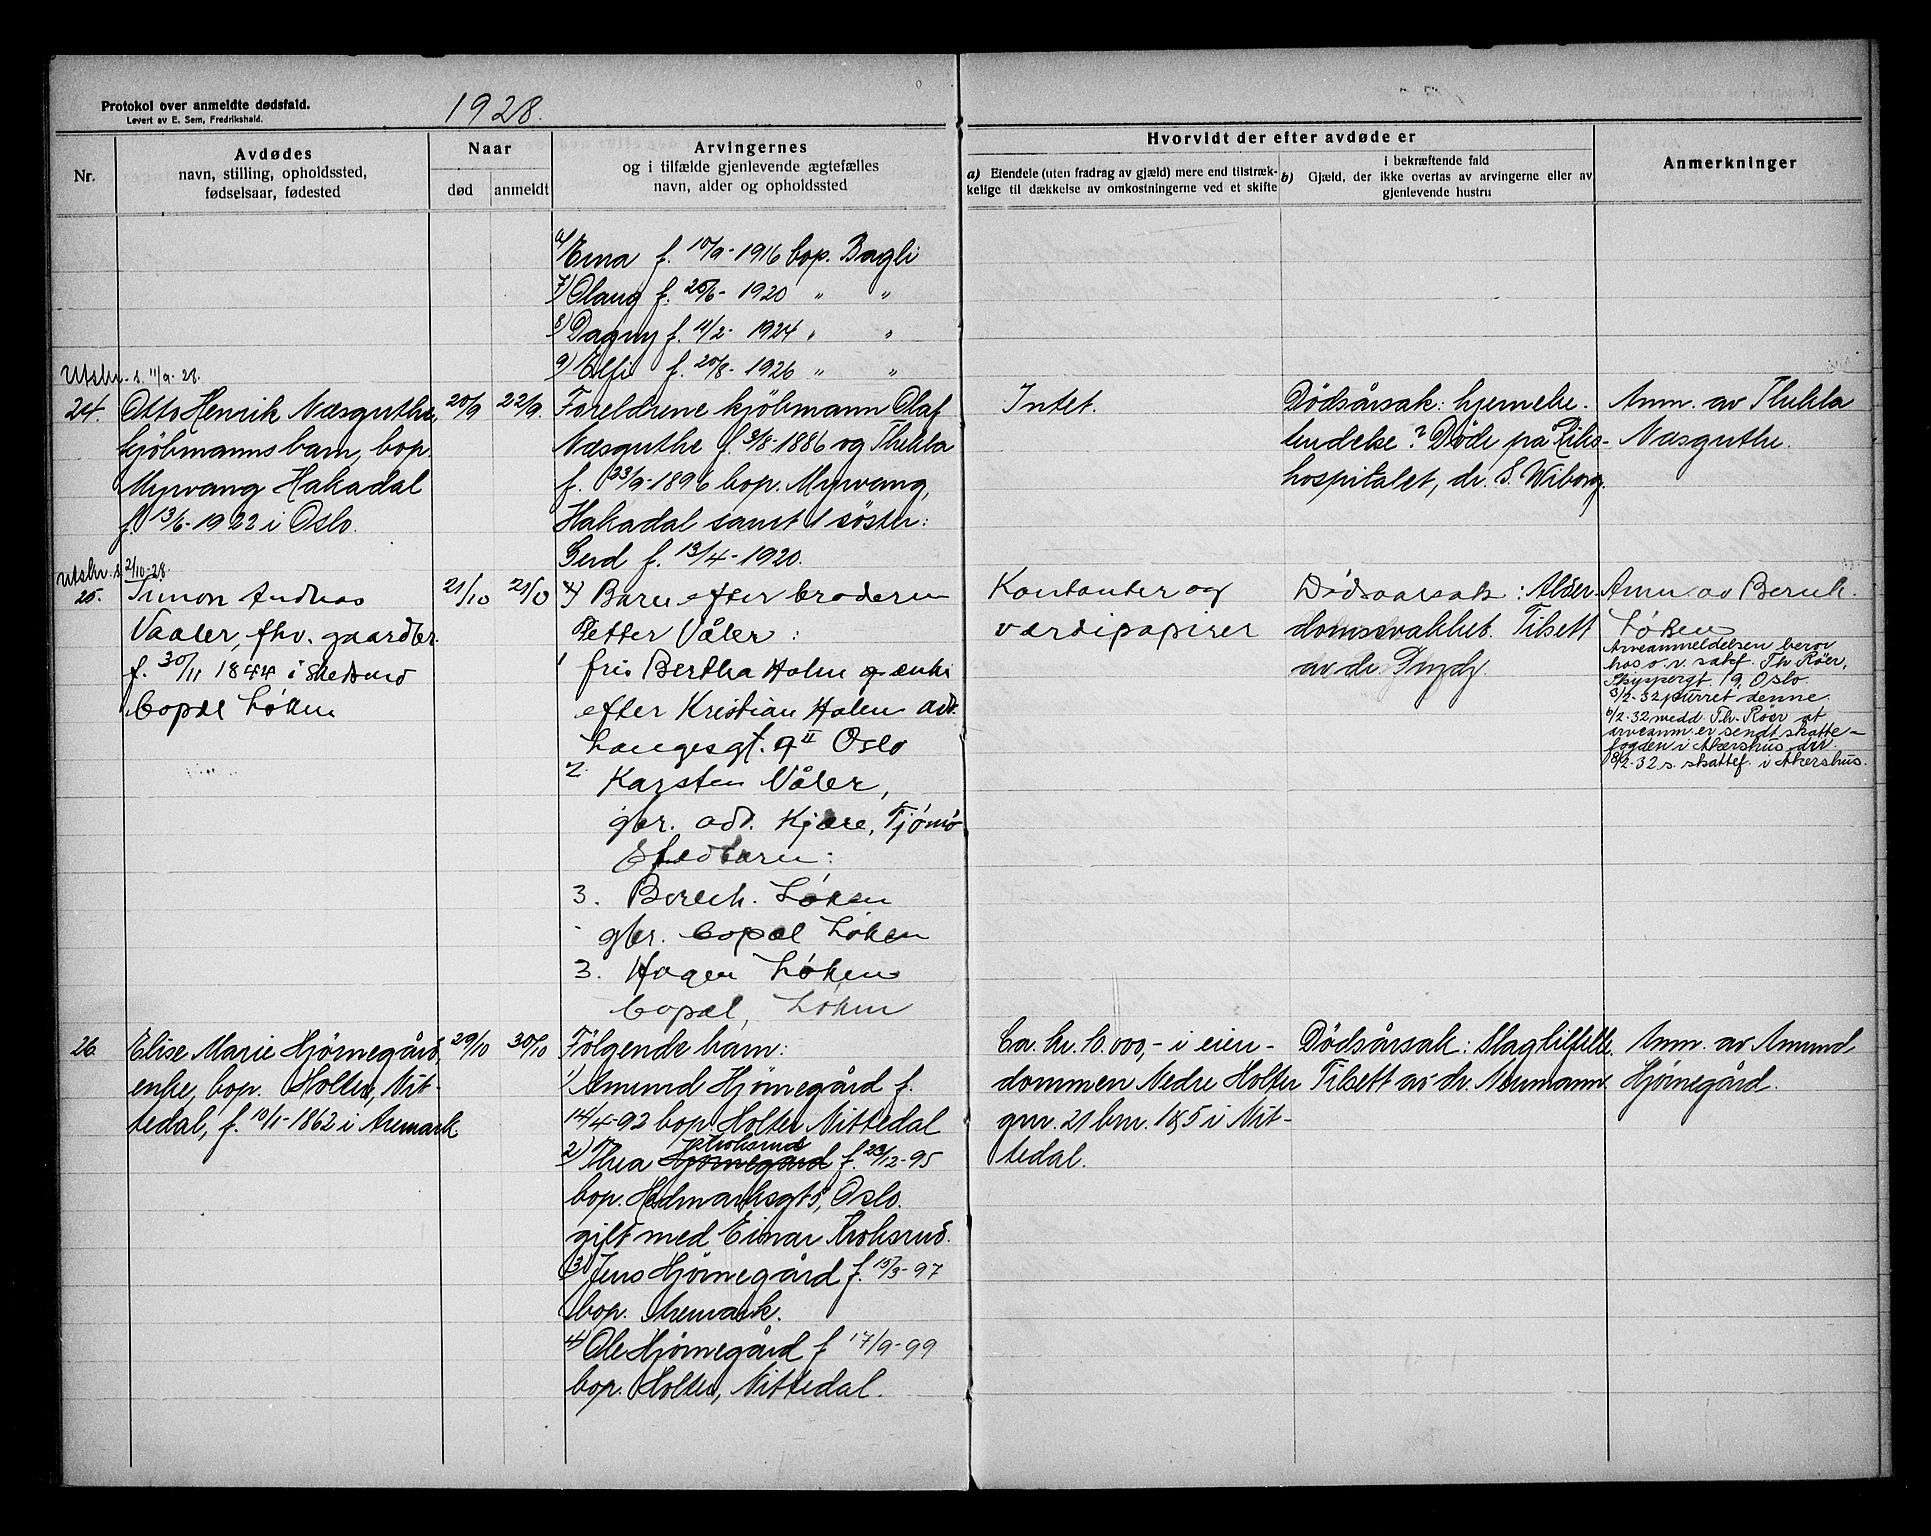 Protokol over anmeldte dødsfald.
Levert av E. Sem, Fredrikshald.
1928.
Nr.
Avdødes
navn, stilling, opholdssted,
fødselsaar, fødested
Naar
død
anmeldt
Arvingernes
og i tilfælde gjenlevende ægtefælles
navn, alder og opholdssted
Hvorvidt der efter avdøde er
a) Eiendele (uten fradrag av gjæld) mere end tilstræk-
kelige til dækkelse av omkostningerne ved et skifte
b) i bekræftende fald
Gjæld, der ikke overtas av arvingerne eller av
gjenlevende hustru
Anmerkninger
6) Erna f. 10/9-1916 bop. Bagli
7) Olaug f. 25/6-1920 " "
8) Dagny f. 11/2-1924 " "
9) Elfi f. 20/8-1926 " "
Utskr. s. 11/9-28.
24.
Otto Henrik Næsguthe,
kjöbmannsbarn, bop.
Myrvang Hakadal
f. 13/6-1922 i Oslo.
20/9
22/9.
Foreldrene kjöbmann Olaf
Næsguthe f. 9/8-1886 og Thekla
f. 23/9-1896 bop. Myrvang,
Hakadal samt 1 söster:
Gerd f. 13/4-1920.
Intet.
Dødsårsak: hjernebe-
tendelse? Døde på Riks-
hospitalet, dr. S. Wiborg.
Anm. av Thekla
Næsguthe.
Utskr. s. 2/10-28.
25.
Simon Andreas
Vaaler, fhv. gaardbr.
f. 30/11 1844 i Skedsmo
bopæl Løken
21/10
21/10
*) Barn efter broderen
Petter Våler:
1 fru Bertha Holm enke
efter Kristian Holm adr.
Langesgt. 9 II Oslo
2. Karsten Våler,
gbr. adr. Kjære, Tjømø
Stedbarn:
3. Bernh. Løken
gbr. bopæl Løken
3. Hagen Løken
bopæl, Løken
Kontanter og
værdipapirer
Dødsaarsak: Alder-
domssvakhet. Tilsett
av dr.
Anm av Bernh.
Løken
Arveanmeldelsen beror
hos o.r. sakf. Th Röer,
Skippergt. 19, Oslo.
3/2-32 purret denne.
6/2-32, medd. Th. Röer at
arveanm. er sendt skatte-
fogden i Akershus
8/2-32 s. skattef. i Akershus.
26.
Elise Marie Hjørnegård,
enke, bop. Holter, Nit-
tedal, f. 10/1-1862 i Aremark.
29/10
30/10
Følgende barn:
1) Amund Hjørnegård f.
14/4-92 bop. Holter Nittedal
2) Thea Hjørnegård Kroksrud f. 23/12-95
bop. Hedmarksgt 5, Oslo.
gift med Einar Kroksrud.
3) Jens Hjørnegård f. 15/3-97
bop. Aremark.
4) Ole Hjørnegård f 17/9-99
bop. Holter, Nittedal.
Ca. kr. 10.000,- i eien-
dommen Nedre Holter
gnr. 21 bnr. 185 i Nit-
tedal.
Dødsårsak: Slagtilfelle.
Tilsett av dr. Neumann.
Anm. av Amund
Hjørnegård.